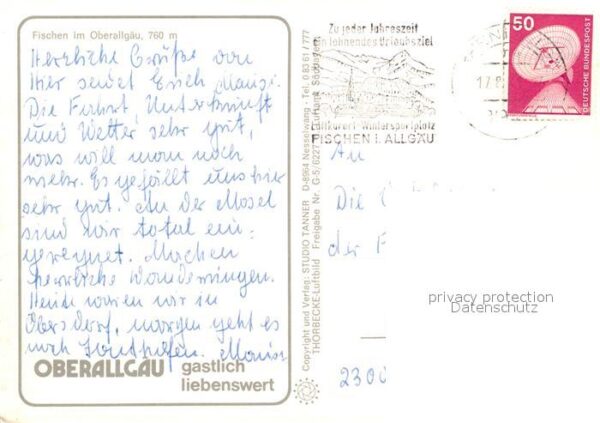 Fischen im Oberallgäu, 760 m
Herzliche Grüße von
hier sendet Euch
Die Fahrt, Unterkunft
und Wetter sehr gut,
was will man noch
mehr. Es gefällt uns hier
sehr gut. An der Mosel
sind wir total ein-
geregnet. Machen
herrliche Wanderungen.
Heute waren wir in
Obersdorf, morgen geht es
nach Sonthofen.
OBERALLGÄU gastlich
liebenswert
Copyright und Verlag: STUDIO TANNER D-8964 Nesselwang · Tel. 0 83 61 / 777
THORBECKE-Luftbild Freigabe Nr. G-5/
Zu jeder Jahreszeit
ein lohnendes Urlaubsziel
Luftkurort · Wintersportplatz
FISCHEN I. ALLGÄU
17.8
50
DEUTSCHE BUNDESPOST
An
Die
der F
privacy protection
Datenschutz
2300